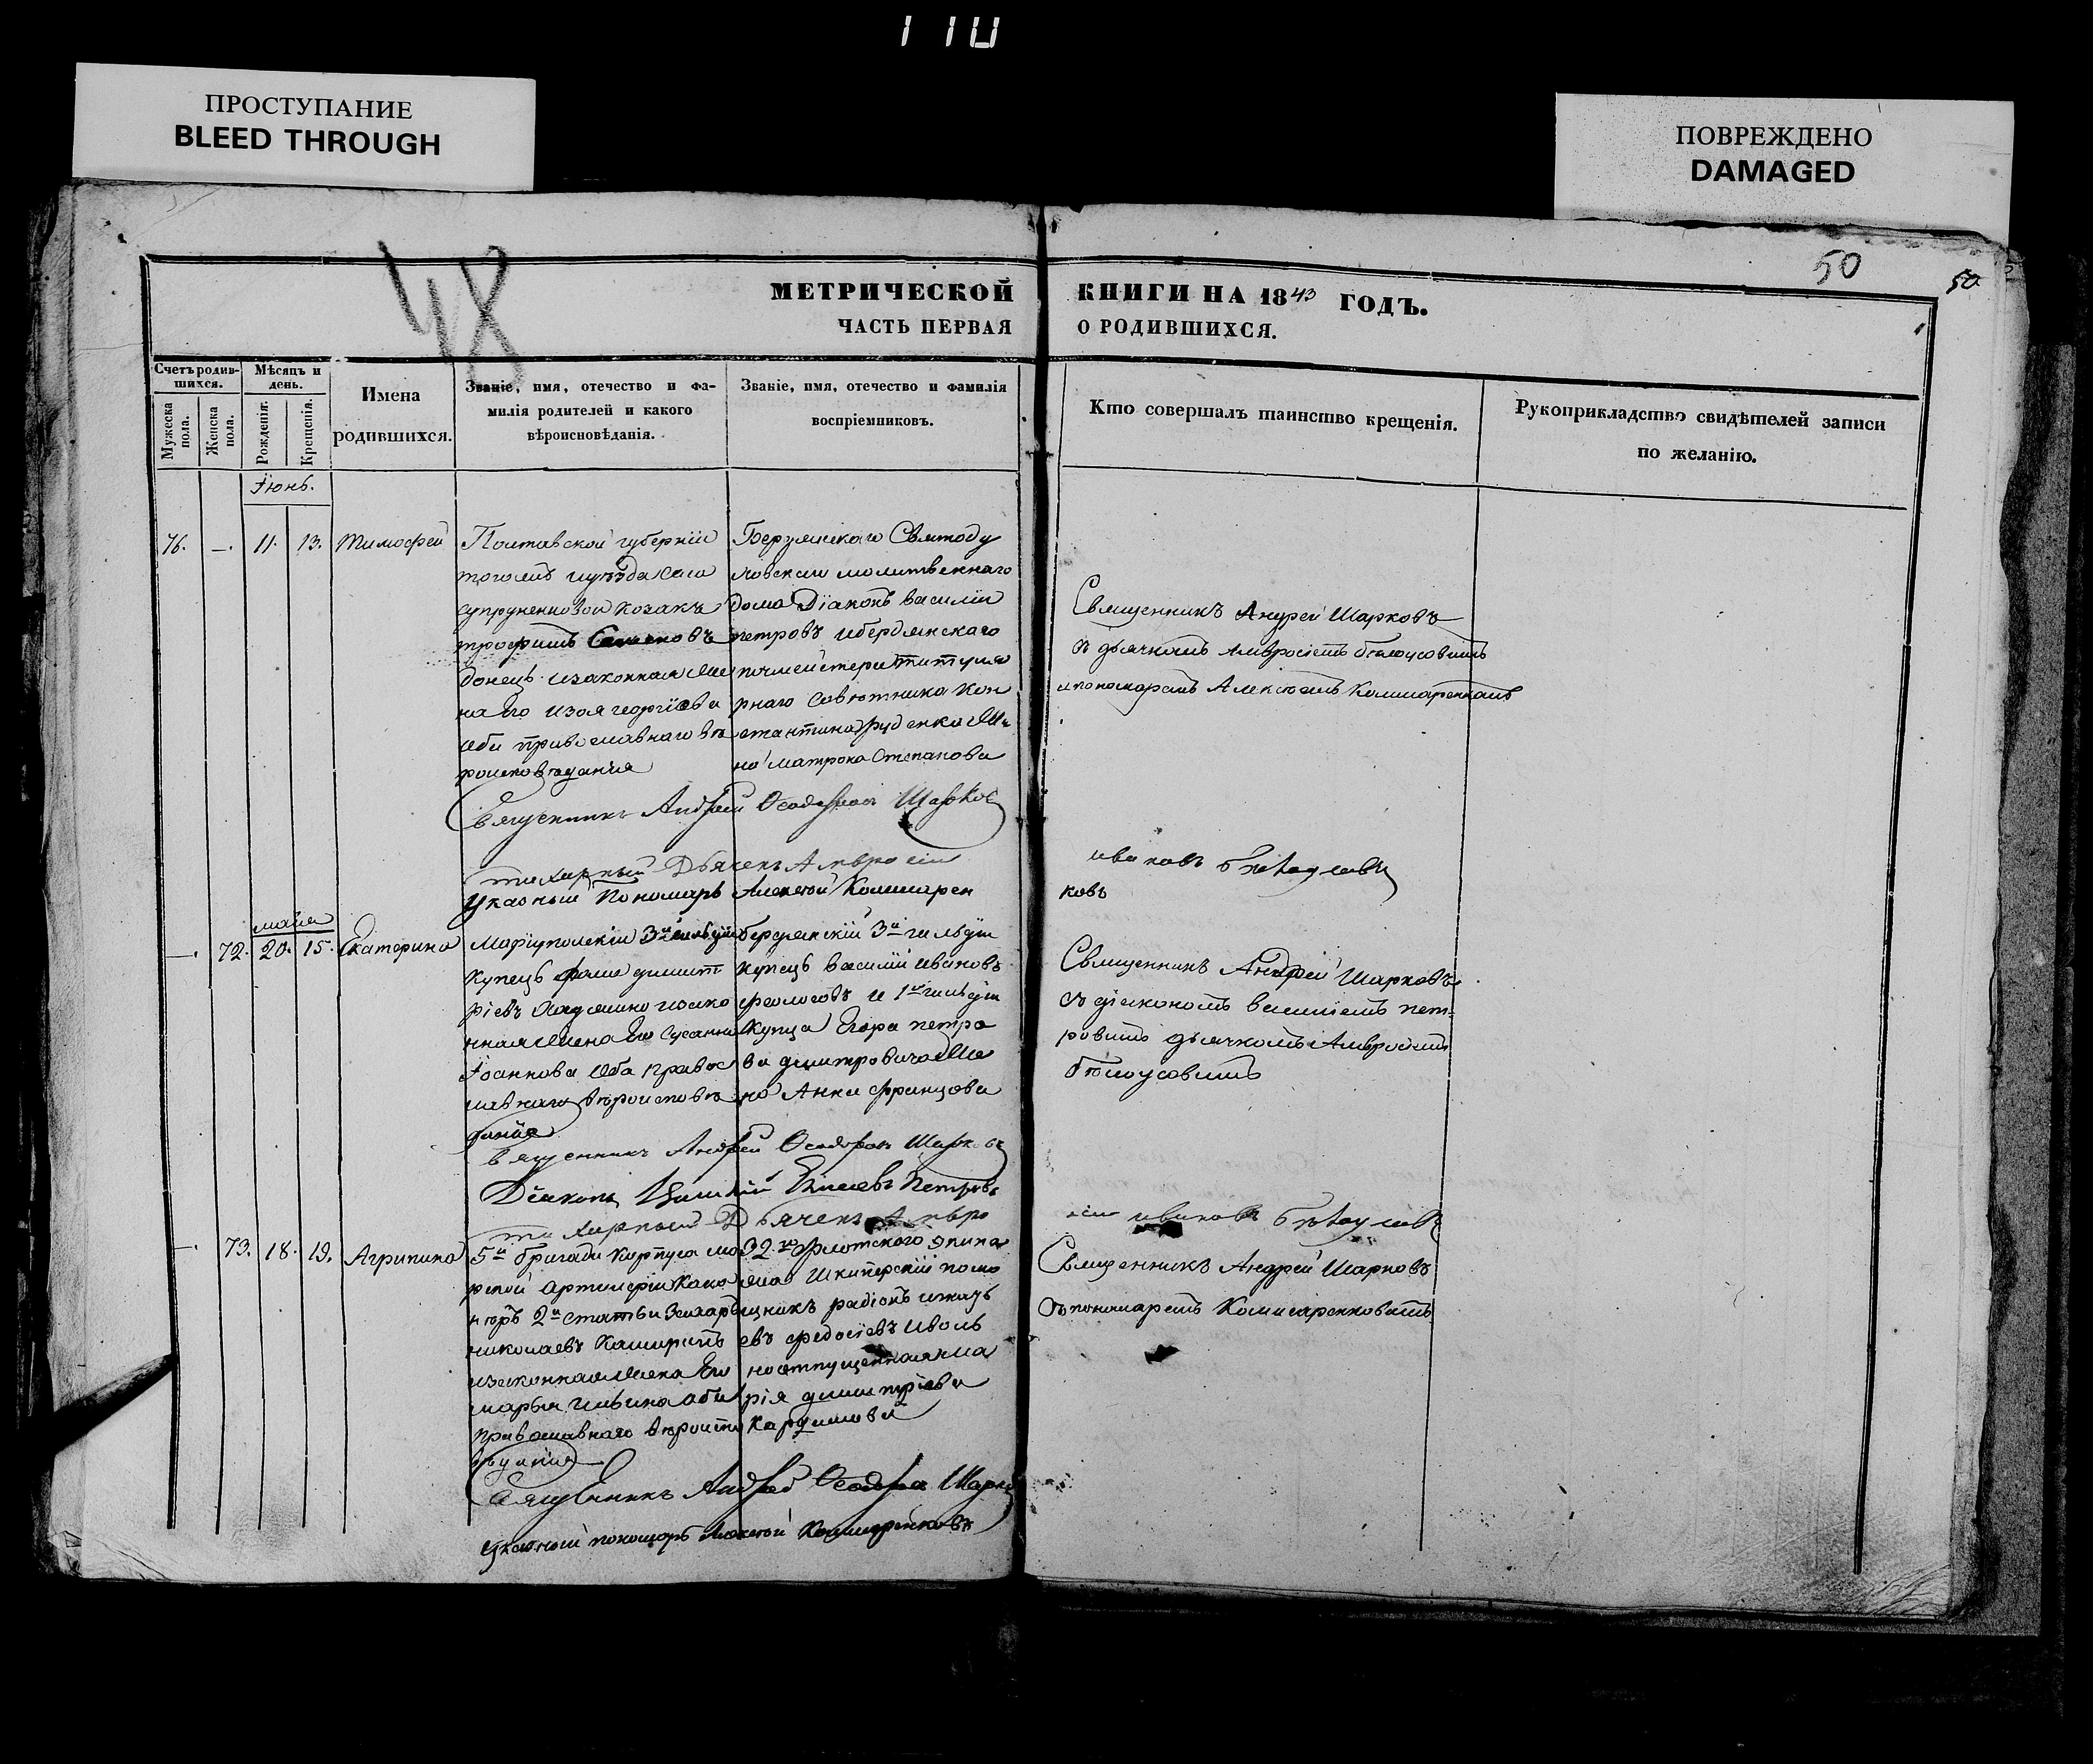 110
ПРОСТУПАНИЕ
BLEED THROUGH
ПОВРЕЖДЕНО
DAMAGED
48
50
50
МЕТРИЧЕСКОЙ КНИГИ НА 1843 ГОДЪ.
ЧАСТЬ ПЕРВАЯ О РОДИВШИХСЯ.
Счетъ родив-
шихся.
Мужеска пола.
Женска пола.
Мѣсяцъ и
день.
Рожденія.
Крещенія.
Имена
родившихся.
Званіе, имя, отечество и фа-
милія родителей и какого
вѣроисповѣданія.
Званіе, имя, отечество и фамилія
воспріемниковъ.
Кто совершалъ таинство крещенія.
Рукоприкладство свидѣтелей записи
по желанію.
Іюнь.
76. —. 11. 13. Тимофей
Полтавской губерніи
козакъ
трофимъ
донецъ изаконная Же
на Его
оба православнаго вѣ
роисповѣданія
Молитвеннаго
дома Діаконъ василій
петровъ ибердянскаго
почмейстера титуля
рнаго совѣтника Кон
стантина руденка Же
на матрона Степанова
Священникъ Андрей Шарковъ
съ дьячкомъ Амвросіемъ бѣлоусовимъ
ипономаремъ Алексѣемъ
Священникъ Андрей Ѳеодоровъ Шарков
Дьячекъ Амвросіи ивановъ бѣлоусовъ
Указный Пономарь Алексѣй Комисарен
ковъ
майя
—. 72. 20. 15. Екатерина
Маріупольскій 3й гильдіи
купецъ фома димит
ріевъ изако
нная Жена Его Сусанна
Іоаннова Оба правос
лавнаго вѣроисповѣ
данія
бердянскій 3й гильдіи
купецъ василій ивановъ
и 1й гильдіи
Купца Егора петро
ва димитровича Же
на Анна францова
Священникъ Андрей Шарковъ
съ діакономъ василіемъ пет-
ровимъ дьячкомъ Амвросіемъ
бѣлоусовимъ
Священникъ Андрей Ѳеодоровъ Шарковъ
Діаконъ Петровъ
Дьячекъ Амвро
сіи ивановъ бѣлоусовъ
—. 73. 18. 19. Агрипина
5й бригади Корпуса мо
рской Артилеріи Кано
нѣръ 2й статьи
николаевъ
изаконная Жена Его
марья ильина оба
православнаго вѣроиспо
вѣданія
32го флотского Экипа
жа Шкиперскій помо
щникъ
ѳедосіевъ иволь
ноотпущенная ма
рія димитріева
Священникъ Андрей Шарковъ
съ пономаремъ Комисаренковимъ
Священникъ Андрей Ѳеодоров Шарков
Указный пономарь Алексѣй Комисаренковъ